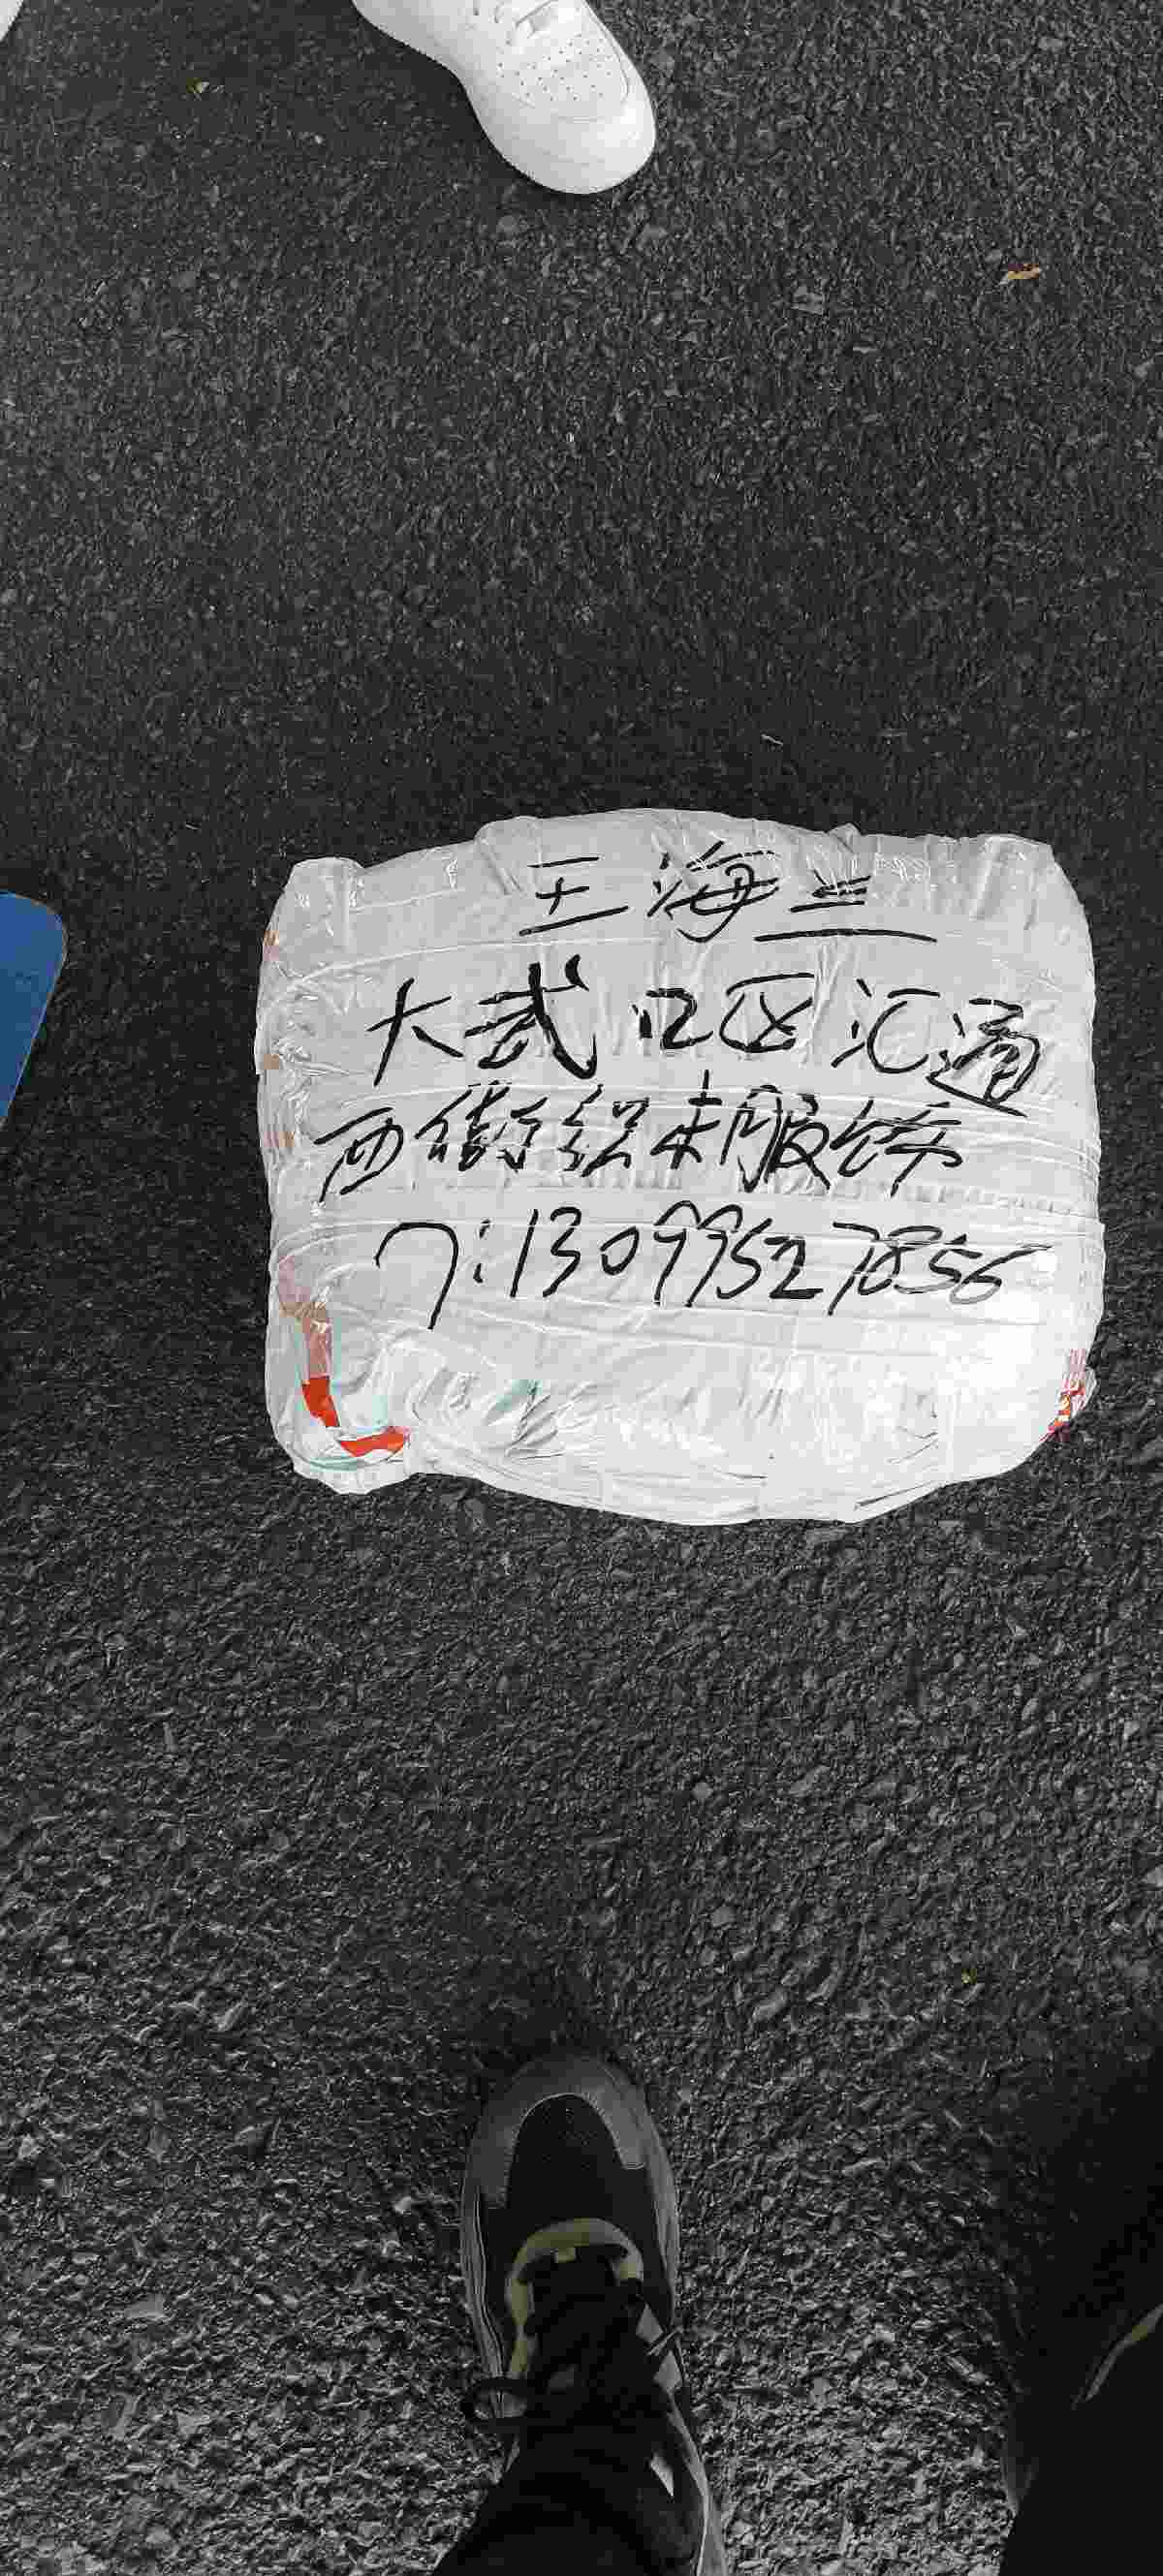 王海兰
大武口区汇通
西街织未服饰
T:13099527856